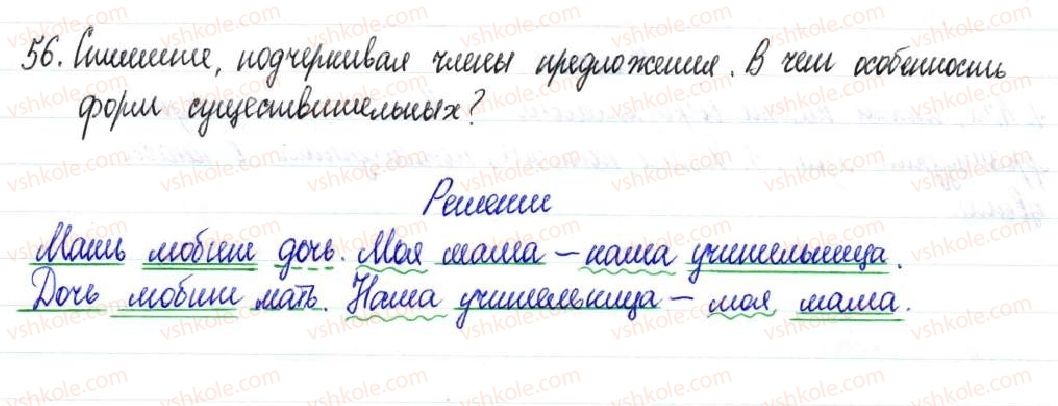 56. Спишите, подчеркивая члены предложения. В чем особенность
форм существительных?
Решение
Мать любит дочь. Моя мама – наша учительница.
Дочь любит мать. Наша учительница – моя мама.